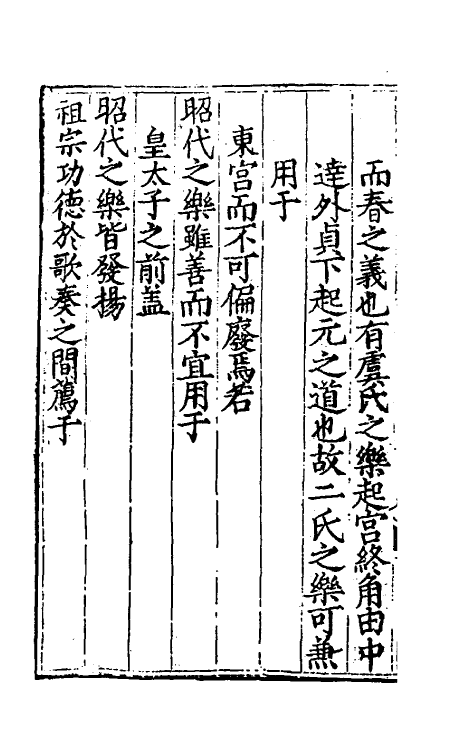 而春之義也有虞氏之樂起宮終角由中
達外貞下起元之道也故二氏之樂可兼
用于
東宮而不可偏廢焉若
昭代之樂雖善而不宜用于
皇太子之前盖
昭代之樂皆發揚
祖宗功德於歌奏之間薦于